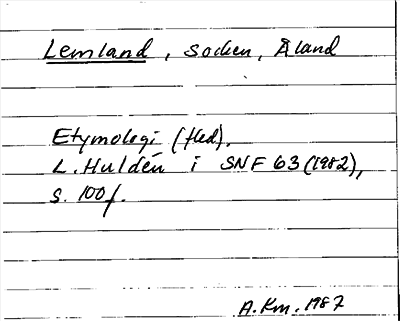 Lemland, socken, Åland
Etymologi (fled).
L. Huldén i SNF 63 (1982),
s. 100 f.
A. Km. 1987